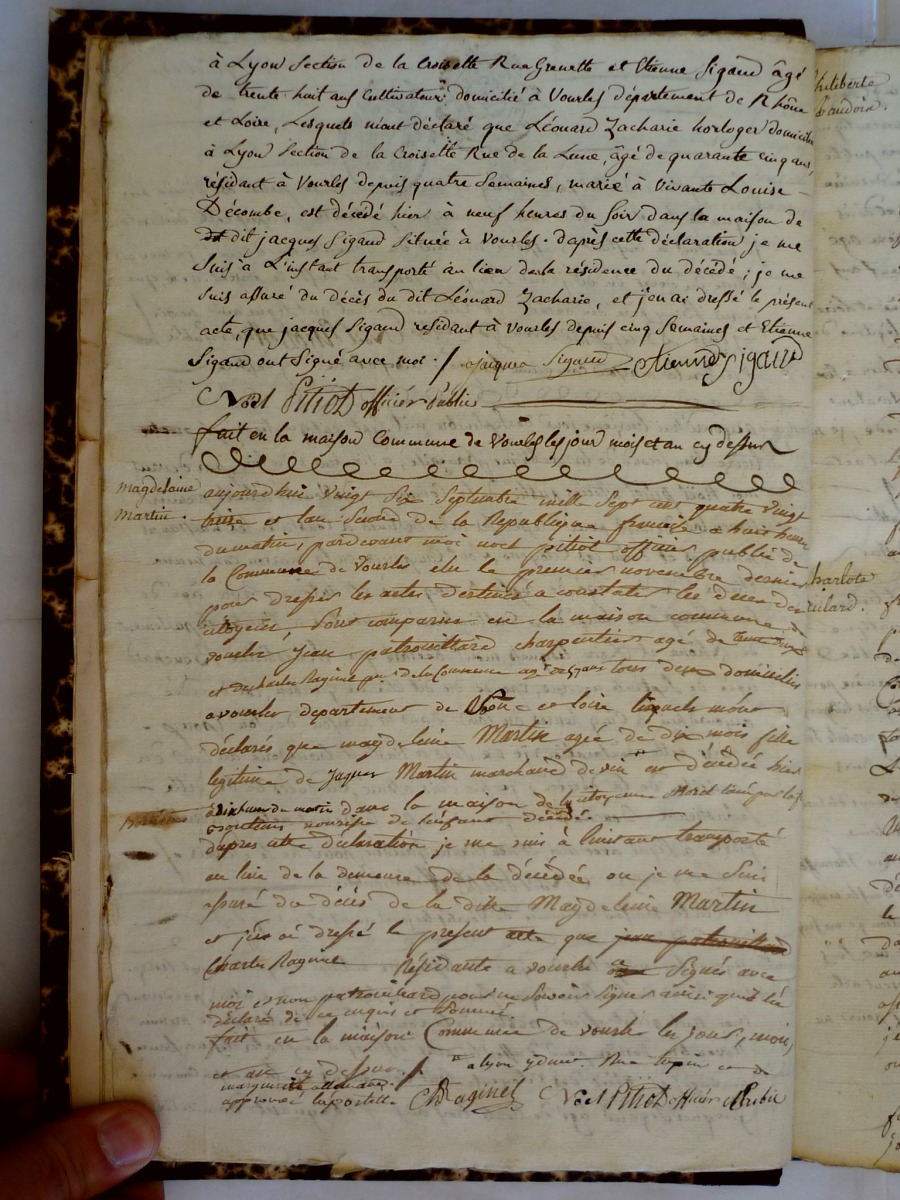 à Lyon Section de la Croisette Rue Grenette et Etienne Sigaud âgé
de trente huit ans Cultivateur domicilié à Vourles département de Rhône
et Loire, Lesquels m'ont déclaré que Léonard Zacharie horloger domicilié
à Lyon Section de la Croisette Rue de la Lune, âgé de quarante cinq ans,
résidant à Vourles depuis quatre Semaines, marié à Vivante Louise
Décombe, est décédé hier à neuf heures du Soir dans la maison de
dit jacques Sigaud Située à Vourles. d'après cette déclaration je me
Suis à L'instant transporté au lieu de la résidence du décédé ; je me
Suis assuré du décès du dit Léonard Zacharie, et j'en ai dressé le présent
acte, que jacques Sigaud residant à Vourles depuis cinq Semaines et Etienne
Sigaud ont Signé avec moi. jacques Sigaud Etienne Sigaud
Noel Pitiot officier Public
fait en la maison Commune de Vourles les jour mois et an cy dessus
Magdelaine
Martin.
aujourdhui vingt Six Septembre mille Sept cent quatre vingt
treize et lan Second de la Republique francaise a huit heures
du matin, pardevant moi noel pitiot officier public de
la Commune de Vourles élu le premier novembre dernier
pour dresser les actes destinés a constater les deces des
citoyens, Sont comparus en la maison commune de
vourles Jean patrouillard charpentier agé de
et de charles Raginet de la Commune agé de 57 ans tous deux domiciliés
a vourles departement de Rhône et loire lesquels m'ont
déclarés que magdeleine Martin agée de dix mois fille
legitime de Jaques Martin marchand de vin est décédée hier
à dix heures du matin dans la maison de la citoyenne
nourisse de l'enfant décédé.
dapres cette déclaration je me suis à linstant transporté
au lieu de la demeure de la décédée ou je me Suis
assuré du décès de la ditte Magdeleine Martin
et j'en ai dressé le present acte que jean patrouillard
Charles Raginet Résidante a vourles a Signés avec
moi et non patrouillard pour ne Savoir Signer ainsi qu'il la
déclaré de ce enquis et Sommé.
fait en la maison Commune de vourles les jour, mois,
et an cy dessus. a lyon Rue et de
marguerite
approuvé Raginet Noel Pitiot officier Public
hiliberte
baudoin.
harlote